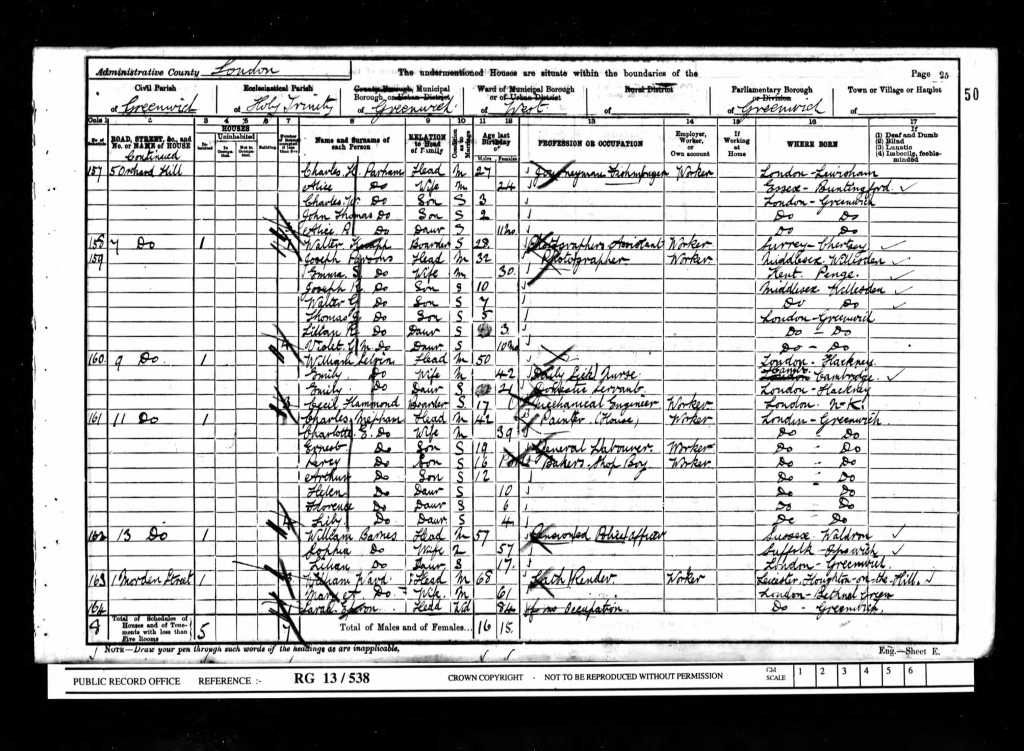 Administrative County London
The undermentioned Houses are situate within the boundaries of the
Page 25
50
Civil Parish
of Greenwich
Ecclesiastical Parish
of Holy Trinity
County Borough, Municipal Borough, or Urban District
of Greenwich
Ward of Municipal Borough or of Urban District
of West
Rural District
of
Parliamentary Borough or Division
of Greenwich
Town or Village or Hamlet
of
Cols 1 2 3 4 5 6 7 8 9 10 11 12 13 14 15 16 17
No. of
ROAD, STREET, &c., and No. or NAME of HOUSE
HOUSES
Uninhabited
Name and Surname of each Person
RELATION to Head of Family
Condition as to Marriage
Age last Birthday
Males Females
PROFESSION OR OCCUPATION
Employer, Worker, or Own account
If Working at Home
WHERE BORN
If (1) Deaf and Dumb (2) Blind (3) Lunatic (4) Imbecile, feeble-minded
Continued
157 5 Orchard Hill Charles Head M 27 Journeyman Fishmonger Worker London - Lewisham
Alice Do Wife M 24 Essex - Buntingford
Charles W. Do Son S 3 London - Greenwich
John Thomas Do Son S 2 Do Do
Alice R. Do Daur S 11 mo Do Do
158 7 Do 1 Walter Boarder S 28 Photographers Assistant Worker Surrey - Chertsey
159 Joseph Head M 32 Photographer Worker Middlesex Willesden
Emma S. Do Wife M 30 Kent. Penge
Joseph Do Son S 10 Middlesex Willesden
Walter G. Do Son S 7 Do Do
Thomas G. Do Son S 5 London - Greenwich
Lilian R. Do Daur S 3 Do - Do
Violet G. M. Do Daur S 10 mo Do - Do
160 9 Do 1 William Head M 50 London - Hackney
Emily Do Wife M 42 Sick Nurse Cambridge
Emily Do Daur S 21 Domestic Servant London - Hackney
Cecil Hammond Boarder S 17 Mechanical Engineer Worker London N.K.
161 11 Do 1 Charles Mepham Head M 42 Painter (House) Worker London - Greenwich
Charlotte E. Do Wife M 39 Do Do
Ernest Do Son S 19 General Labourer Worker Do Do
Percy Do Son S 16 Bakers Shop Boy Worker Do Do
Arthur Do Son S 12 Do Do
Helen Do Daur S 10 Do Do
Florence Do Daur S 6 Do Do
Lily Do Daur S 4 Do Do
162 13 Do 1 William Barnes Head M 57 Pensioned Police officer Sussex Waldron
Sophia Do Wife 57 Suffolk - Ipswich
Lilian Do Daur S 17 London - Greenwich
163 1 Morden Street 1 William Ward Head M 68 Lath Render Worker Leicester, Houghton-on-the-Hill
Mary Do Wife M 61 London - Bethnal Green
164 Sarah Head Wd 84 no Occupation Do - Greenwich
8 Total of Schedules of Houses and of Tenements with less than Five Rooms 5 7 Total of Males and of Females... 16 15
NOTE—Draw your pen through such words of the headings as are inapplicable.
Eng.—Sheet E.
PUBLIC RECORD OFFICE REFERENCE :- RG 13 / 538 CROWN COPYRIGHT - NOT TO BE REPRODUCED WITHOUT PERMISSION CM SCALE 1 2 3 4 5 6